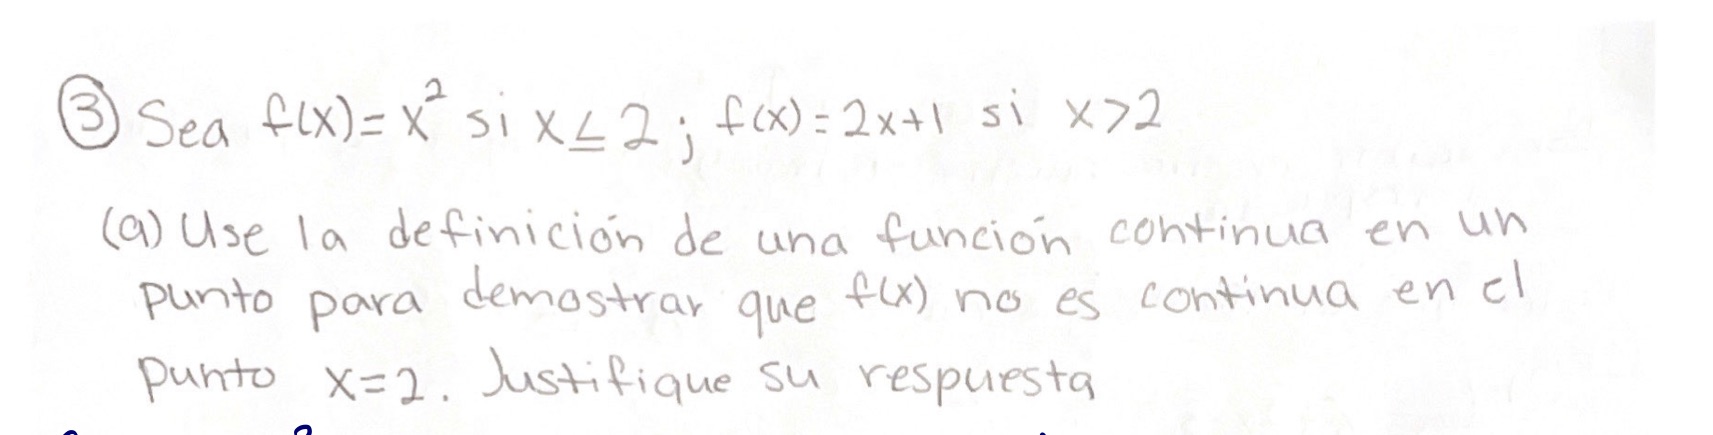 ③ Sea f(x) = x² si x ≤ 2 ; f(x) = 2x+1 si x>2
(a) Use la definición de una función continua en un
punto para demostrar que f(x) no es continua en el
punto x=2. Justifique su respuesta